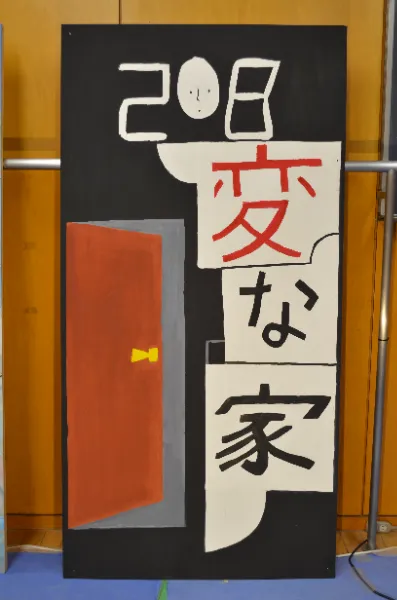 208
変な家